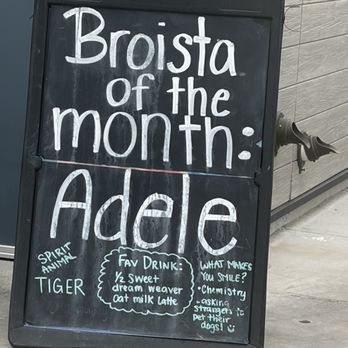 Broista
of the
month:
Adele
SPIRIT
ANIMAL
TIGER
FAV DRINK:
½ sweet
dream weaver
oat milk latte
WHAT MAKES
YOU SMILE?
• Chemistry
• asking
strangers to
pet their
dogs! :)